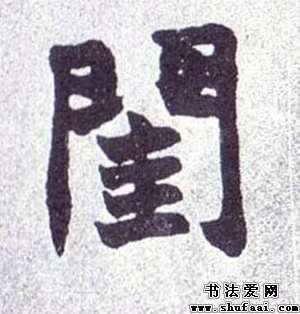 閨
书法爱网
www.shufaai.com